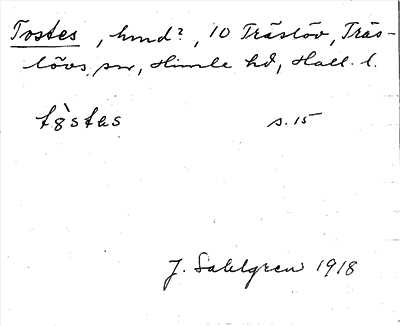 Tostes, hmd?, 10 Träslöv, Träs-
lövs sn, Himle hd, Hall. l.
tòstas s. 15
J. Sahlgren 1918